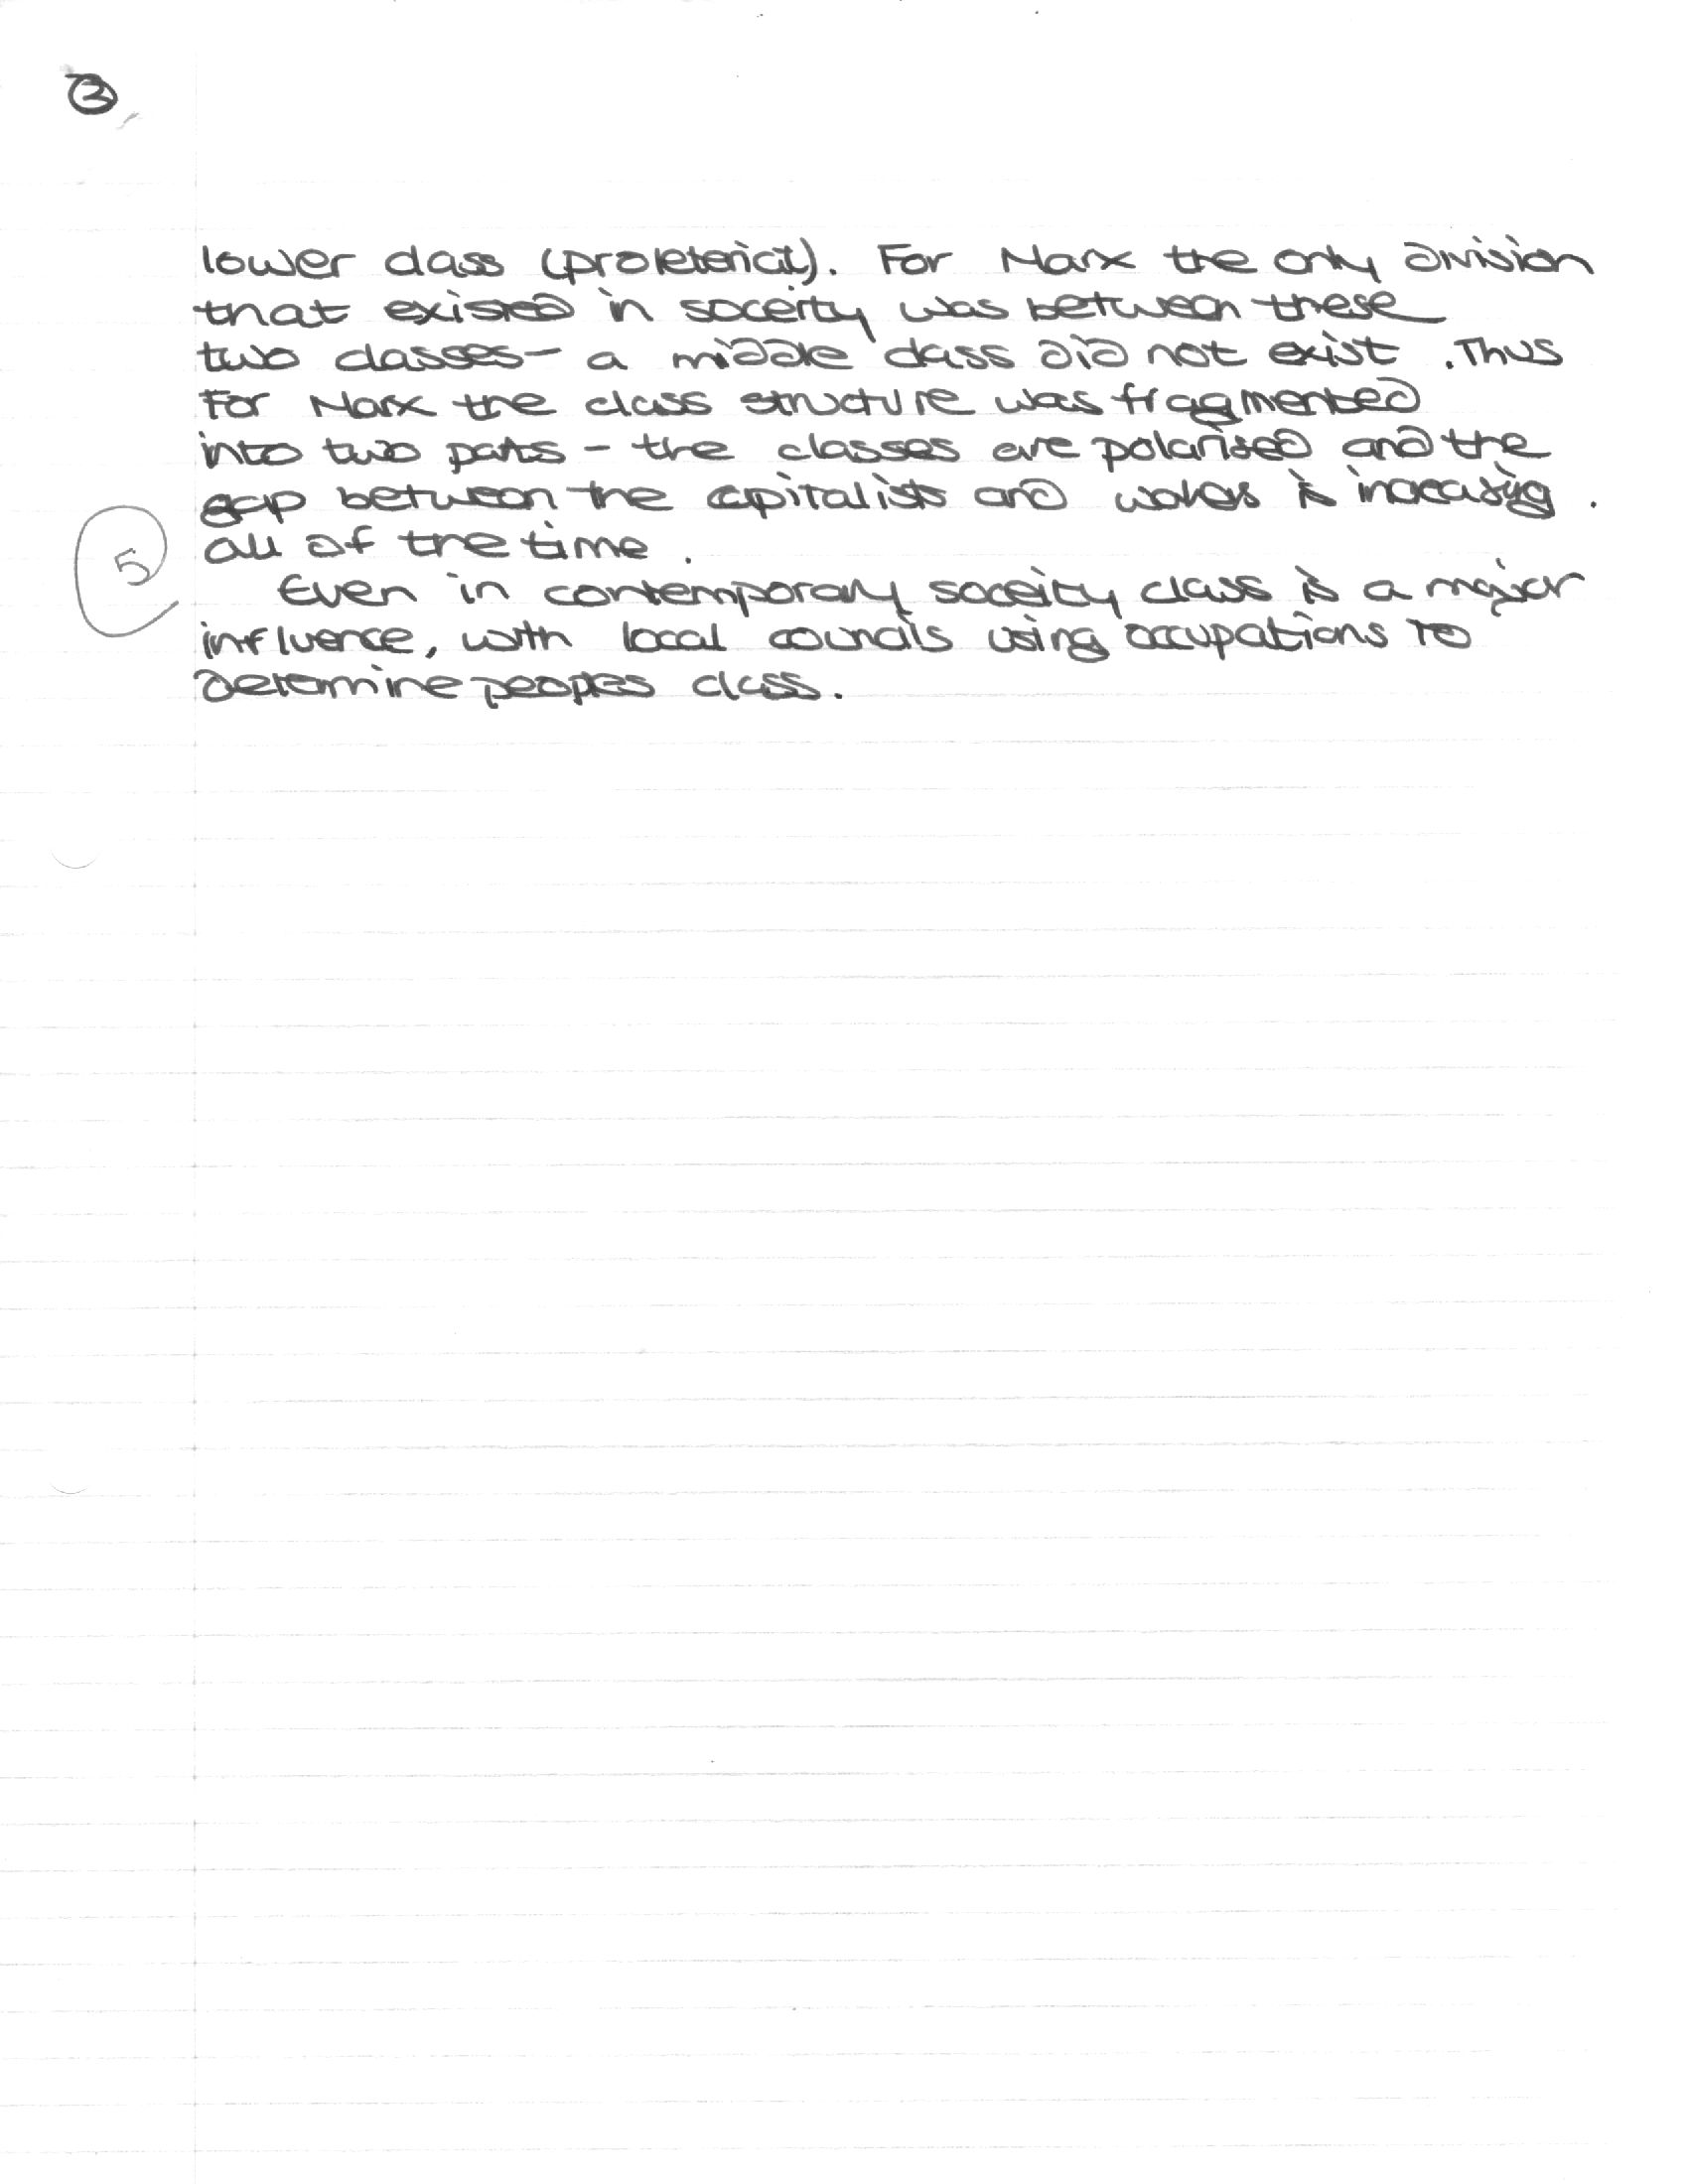 3
lower class (proleteriat). For Marx the only division
that existed in soceity was between these
two classes - a middle class did not exist. Thus
For Marx the class structure was fragmented
into two parts - the classes are polarised and the
gap between the capitalists and workers is increasing
all of the time.
5
Even in contemporary soceity class is a major
influence, with local councils using occupations to
determine peoples class.